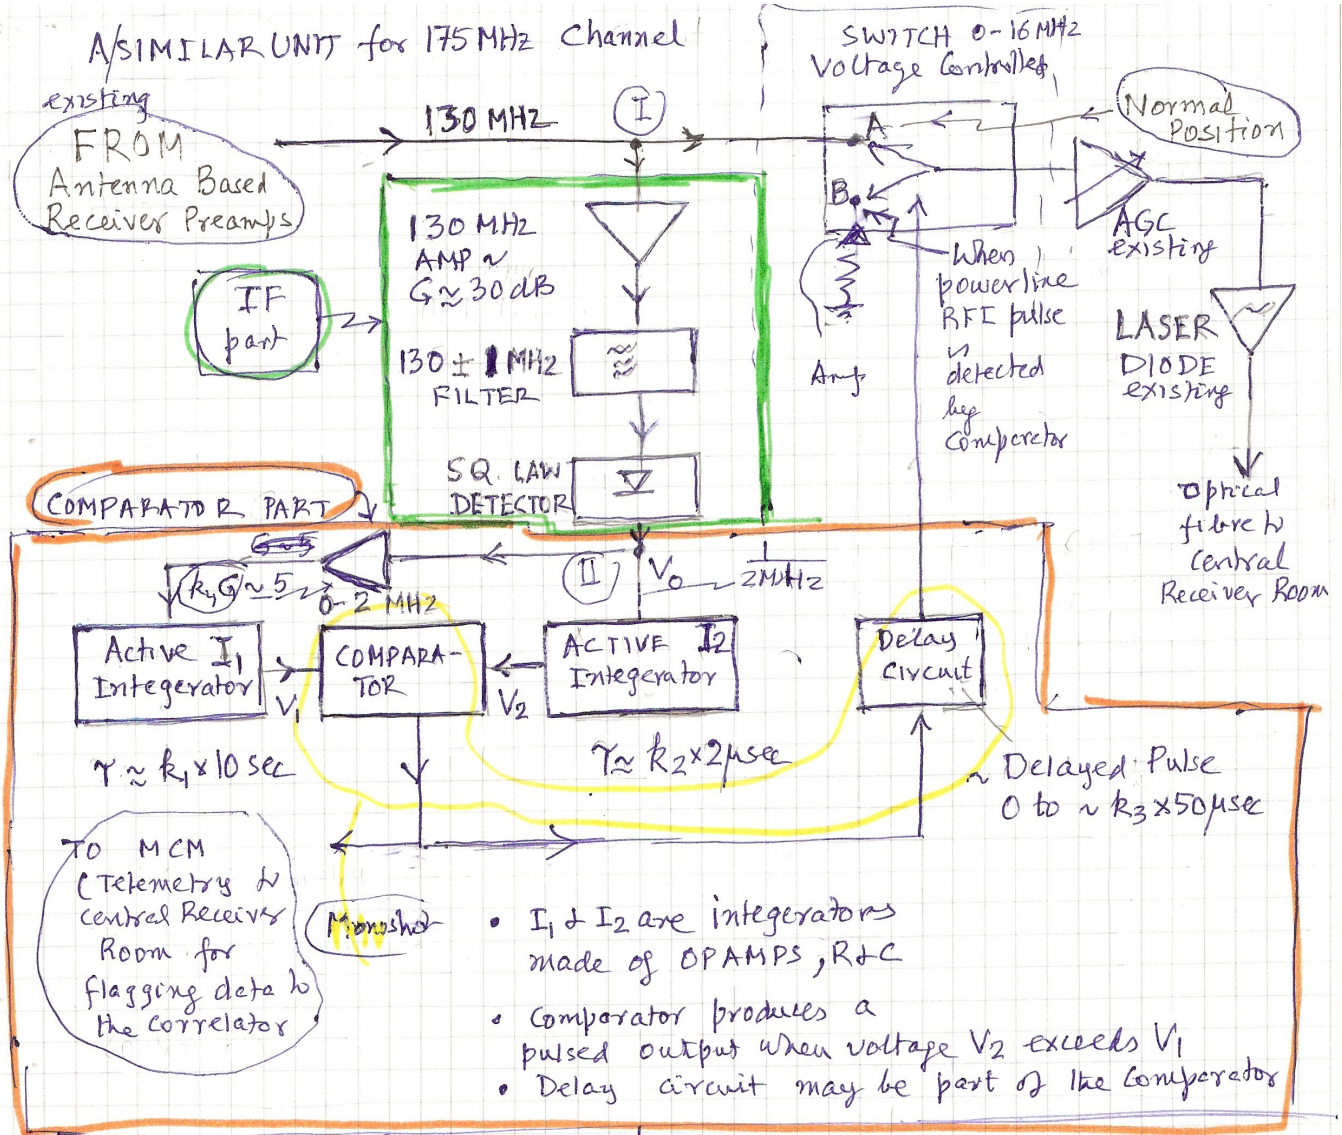 A/SIMILAR UNIT for 175 MHz Channel
SWITCH 0-16 MHz
Voltage Controlled
existing
FROM
Antenna Based
Receiver Preamps
130 MHz
I
A
B
Normal
Position
130 MHz
AMP ~
G ≈ 30 dB
IF
part
130 ± 1 MHz
FILTER
SQ. LAW
DETECTOR
When
powerline
RFI pulse
is
detected
by
Comperator
AGC
existing
LASER
DIODE
existing
Optical
fibre to
Central
Receiver Room
COMPARATOR PART
k4 G ≈ 5
0-2 MHz
II
V0
1
2MHz
Active I1
Integerator
V1
COMPARA-
TOR
V2
ACTIVE I2
Integerator
Delay
Circuit
τ ≈ k1 × 10 sec
τ ≈ k2 × 2 μsec
~ Delayed Pulse
0 to ~ k3 × 50 μsec
TO MCM
(Telemetry to
central Receiver
Room for
flagging data to
the correlator
Monoshot
• I1 & I2 are integerators
made of OPAMPS, R & C
• Comparator produces a
pulsed output when voltage V2 exceeds V1
• Delay circuit may be part of the Comperator